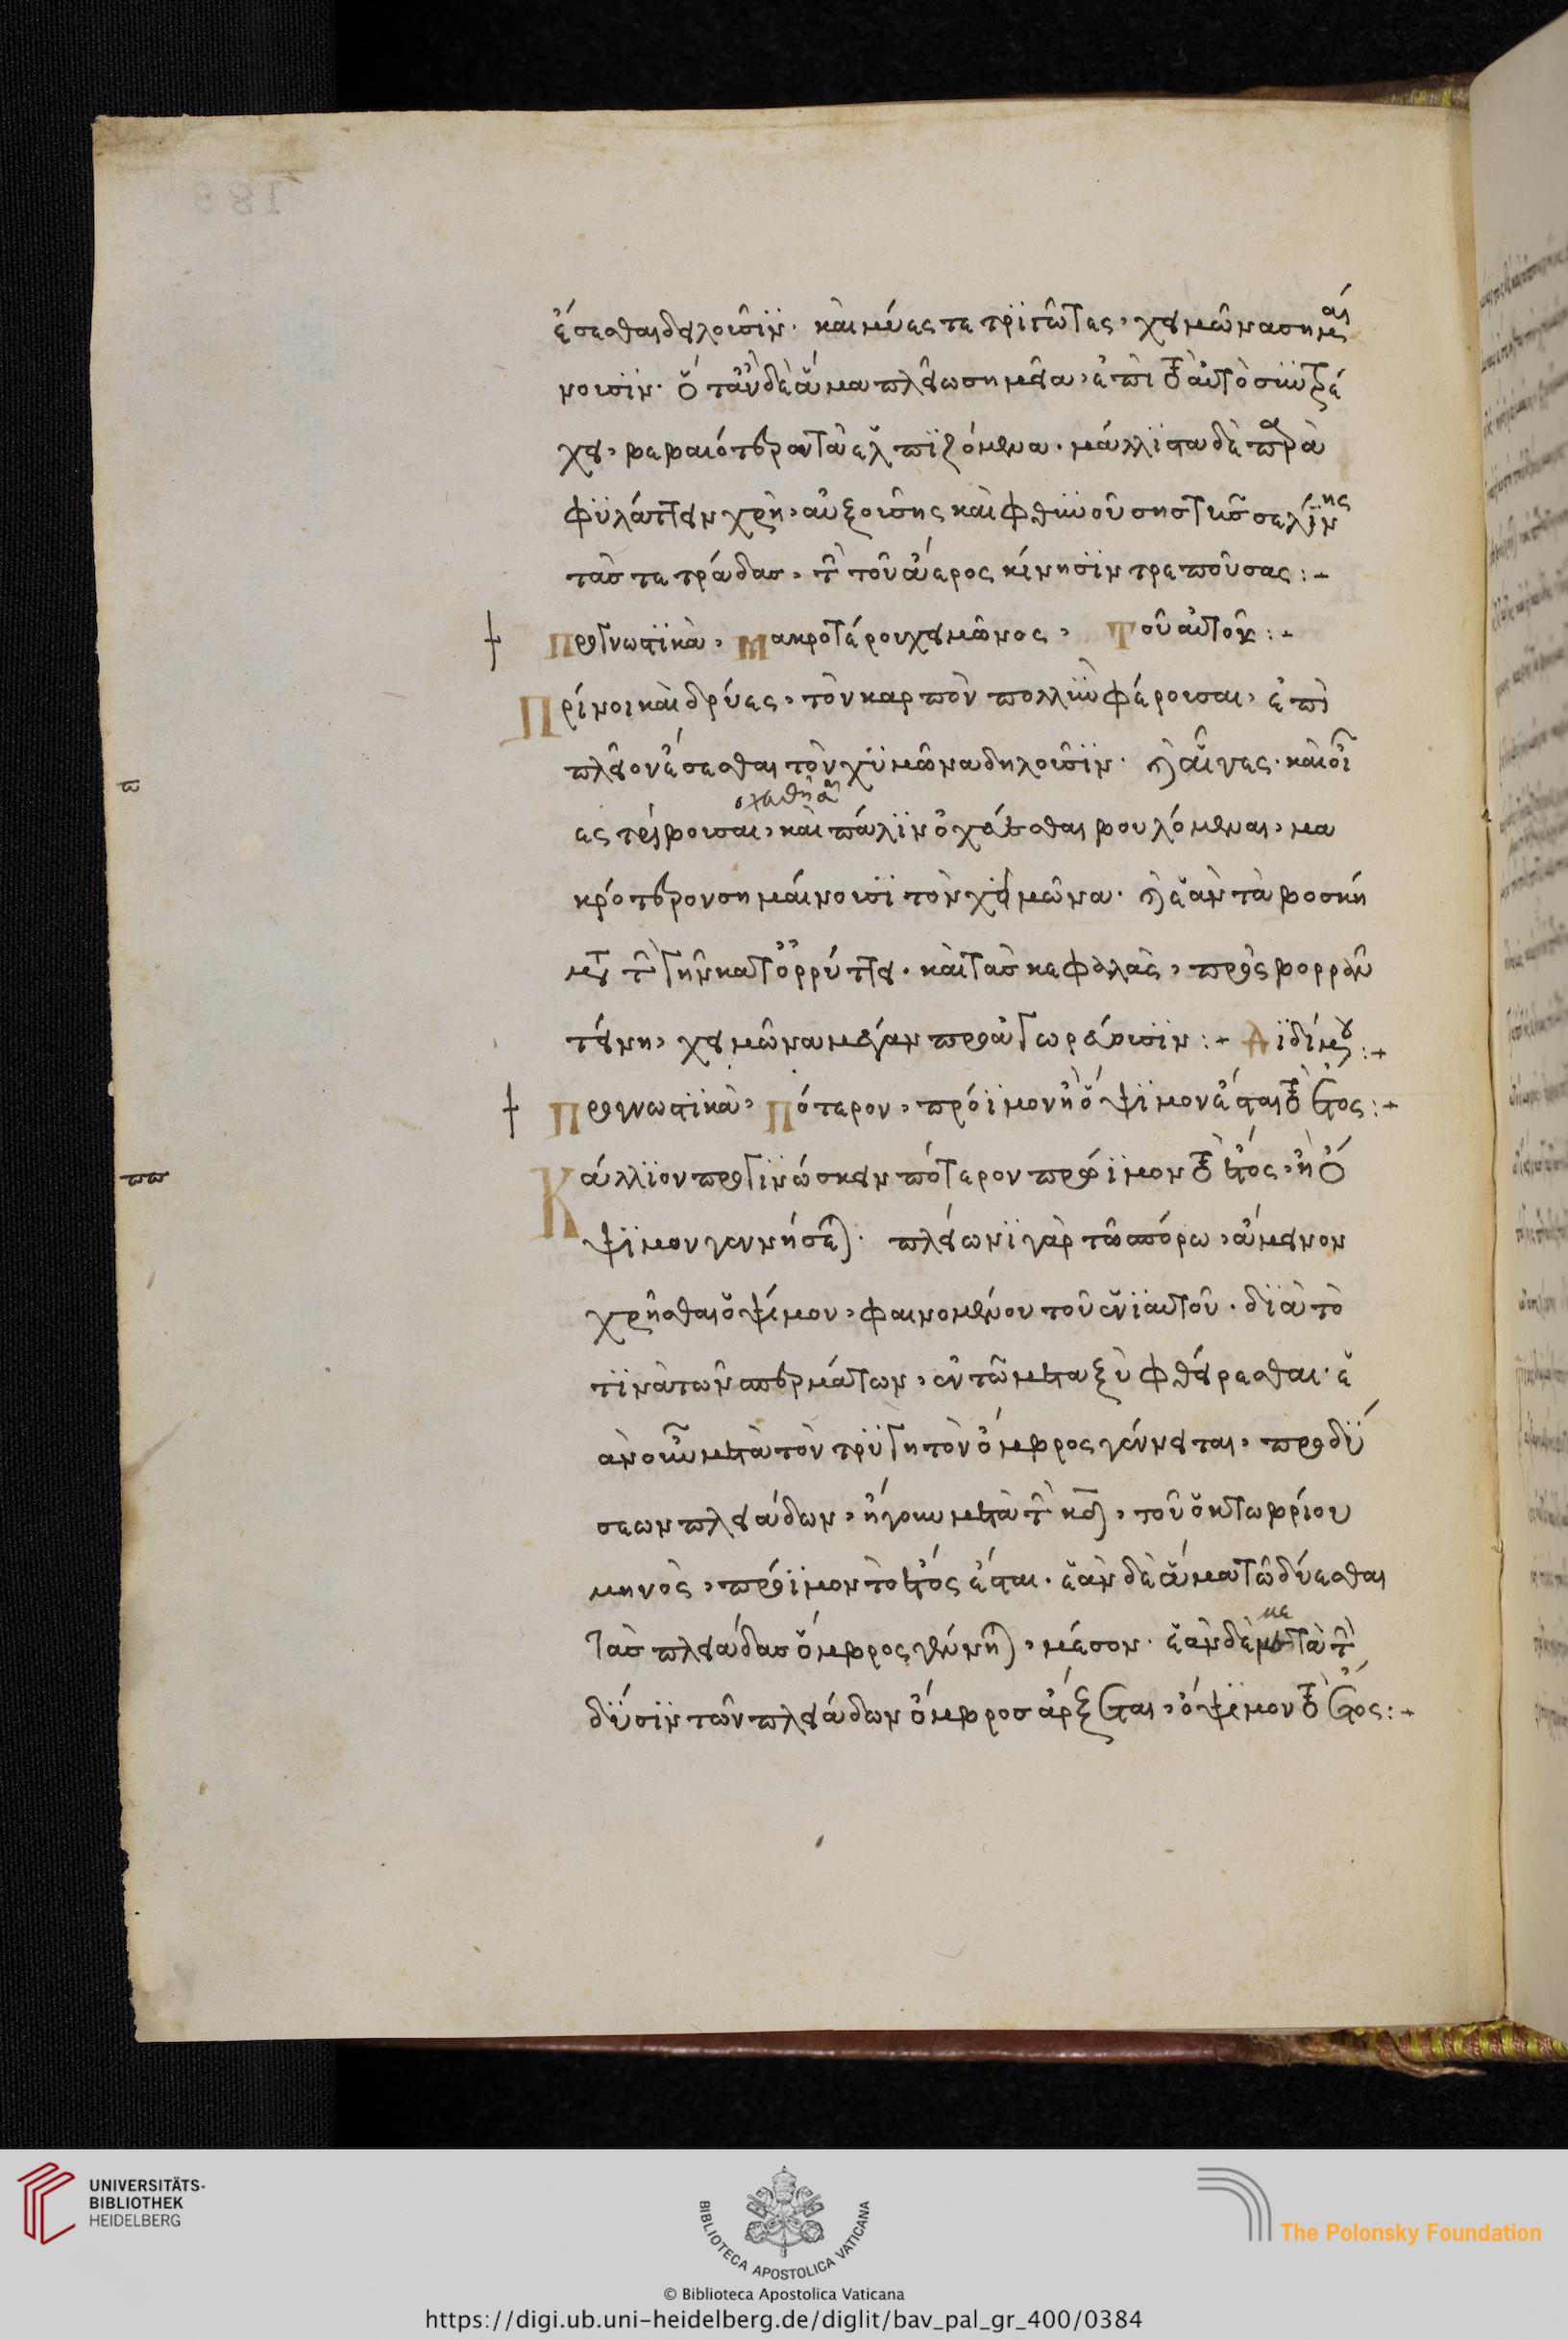 ἔσεσθαι δηλοῦσϊν· καὶ μύες τετριγῶτες, χειμῶνα σημαί
νουσϊν· ὅταν δὲ ἅμα πλείω σημεῖα, ἐπὶ τὸ αὐτὸ σϋντρέ
χει, βεβαιότερα τὰ ἐλπϊζόμενα· μάλλϊστα δὲ παρὰ
φϋλάττειν χρὴ, αὐξούσης καὶ φθϊνούσης τῆς σελίνης
τὰς τετράδας, τὴν τοῦ ἀέρος κίνησϊν τρεπούσας :-
Προγνωστϊκὰ, Μακροτέρου χειμῶνος, Τοῦ αὐτοῦ :-
Πρίνοι καὶ δρύες, τὸν καρπὸν πολλὴν φέρουσαι, ἐπὶ
πλεῖον ἔσεσθαι τὸν χϋμῶνα δηλοῦσϊν· καὶ αἶγες· καὶ οἶ
ες τρίβουσαι, καὶ πάλϊν ὀχεύεσθαι βουλόμεναι, μα
κρότερον σημαίνουσϊ τὸν χειμῶνα· καὶ ἐὰν τὰ βοσκή
ματα τὴν γῆν κατορρύττει· καὶ τὰς κεφαλὰς, πρὸς βορρᾶν
τείνη, χειμῶνα μέγαν προαγωρεύουσϊν :- Δϊδίμου :-
Προγνωστϊκὰ, Πότερον, πρόϊμον ἢ ὄψϊμον ἔσται τὸ ἔτος :-
π
Κάλλϊον προγϊνώσκειν πότερον πρόϊμον τὸ ἔτος, ἢ ὄ
ππ
ψϊμον γεννήσεται· πλείωνϊ γὰρ τῶ σπόρω, ἄμεινον
χρῆσθαι ὀψίμου, φαινομένου τοῦ ἐνϊαυτοῦ· δϊὰ τὸ
τϊνὰ τῶν σπερμάτων, ἐν τῶ μεταξὺ φθείρεσθαι· ἐ
ὰν οὖν μετὰ τὸν τρϋγητὸν ὄμβρος γένειται, πρὸ δϋ
σεων πλειάδων, ἤγουν μετὰ τὴν κδ, τοῦ ὀκτωβρίου
μηνὸς, πρόϊμον τὸ ἔτος ἔσται· ἐὰν δὲ ἅμα τῶ δύεσθαι
τὰς πλειάδας ὄμβρος γένηται, μέσον· ἐὰν δὲ μετὰ τὴν
δϋσϊν τῶν πλειάδων ὄμβρος ἄρξεται, ὄψϊμον τὸ ἔτος :-
UNIVERSITÄTS-
BIBLIOTHEK
HEIDELBERG
BIBLIOTECA APOSTOLICA VATICANA
The Polonsky Foundation
© Biblioteca Apostolica Vaticana
https://digi.ub.uni-heidelberg.de/diglit/bav_pal_gr_400/0384